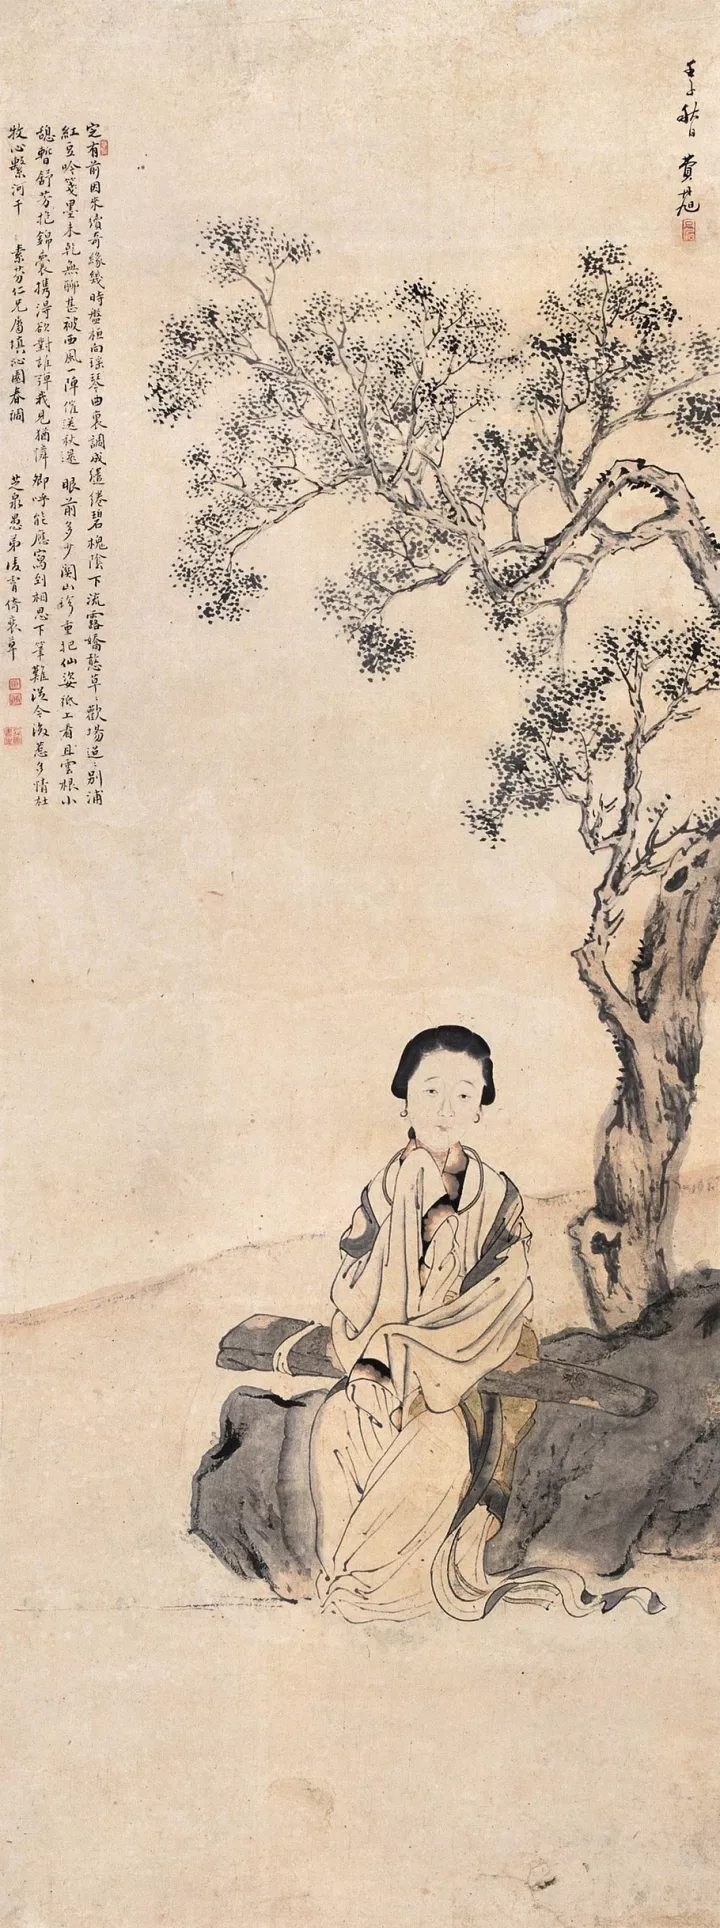 秋日 費
定有前因未償奇緣幾時盤桓向瑤琴曲裏調成繾綣碧槐陰下流露嬌憨草〻歡場迢〻別浦
紅豆吟箋墨未乾無聊甚被西風一陣催送秋還 眼前多少關山珍重把仙姿紙上看且雲根小
憩暫舒芳抱錦囊攜得欲對誰彈我見猶憐卿呼能應寫到相思下筆難從今後惹多情杜
牧心繫河干 素芬仁兄屬填沁園春調 芝泉愚弟凌霄倚裝草